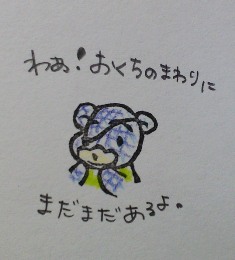 わあ!おくちのまわりに
まだまだあるよ。